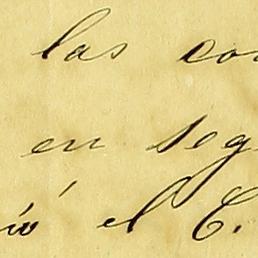 las co
en seg
ió el C.